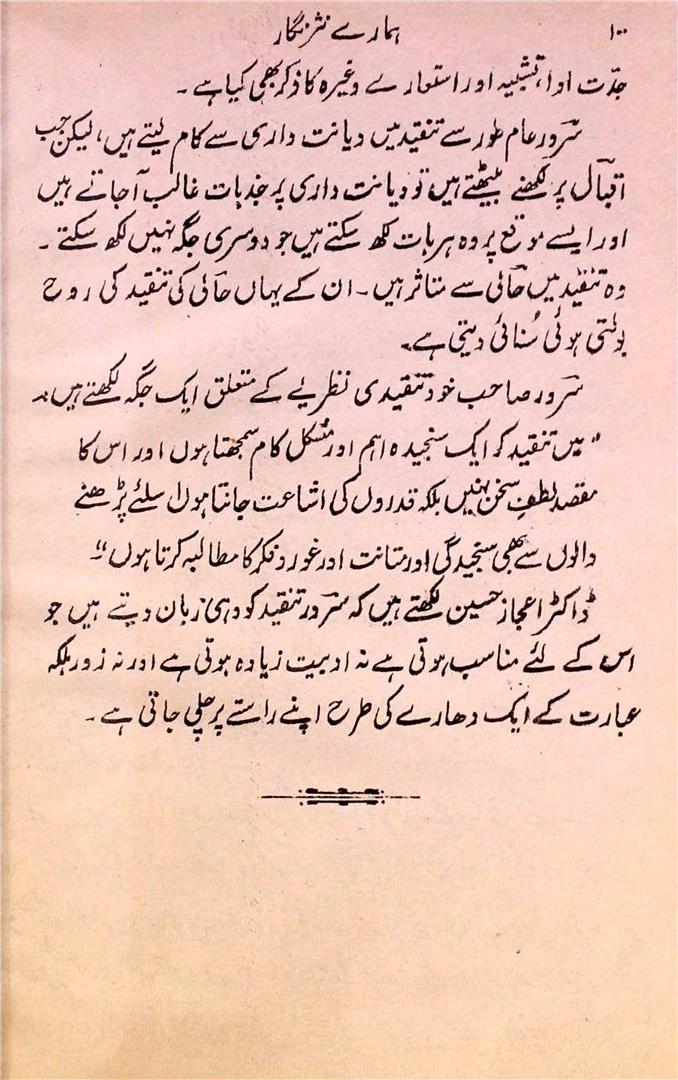 ۱۰۰ ہمارے نثر نگار
جدّت ادا، تشبیہ اور استعارے وغیرہ کا ذکر بھی کیا ہے۔
سرور عام طور سے تنقید میں دیانت داری سے کام لیتے ہیں، لیکن جب
اقبال پر لکھنے بیٹھتے ہیں تو دیانت داری پر جذبات غالب آجاتے ہیں
اور ایسے موقع پر وہ ہر بات لکھ سکتے ہیں جو دوسری جگہ نہیں لکھ سکتے۔
وہ تنقید میں حالی سے متاثر ہیں۔ ان کے یہاں حالی کی تنقید کی روح
بولتی ہوئی سُنائی دیتی ہے۔
سرور صاحب خود تنقیدی نظریے کے متعلق ایک جگہ لکھتے ہیں:۔
"میں تنقید کو ایک سنجیدہ اہم اور مشکل کام سمجھتا ہوں اور اس کا
مقصد لطفِ سخن نہیں بلکہ قدروں کی اشاعت جانتا ہوں اسلئے پڑھنے
والوں سے بھی سنجیدگی اور متانت اور غور و فکر کا مطالبہ کرتا ہوں"۔
ڈاکٹر اعجاز حسین لکھتے ہیں کہ سرور تنقید کو وہی زبان دیتے ہیں جو
اس کے لئے مناسب ہوتی ہے نہ ادبیت زیادہ ہوتی ہے اور نہ زور بلکہ
عبارت کے ایک دھارے کی طرح اپنے راستے پر چلی جاتی ہے۔